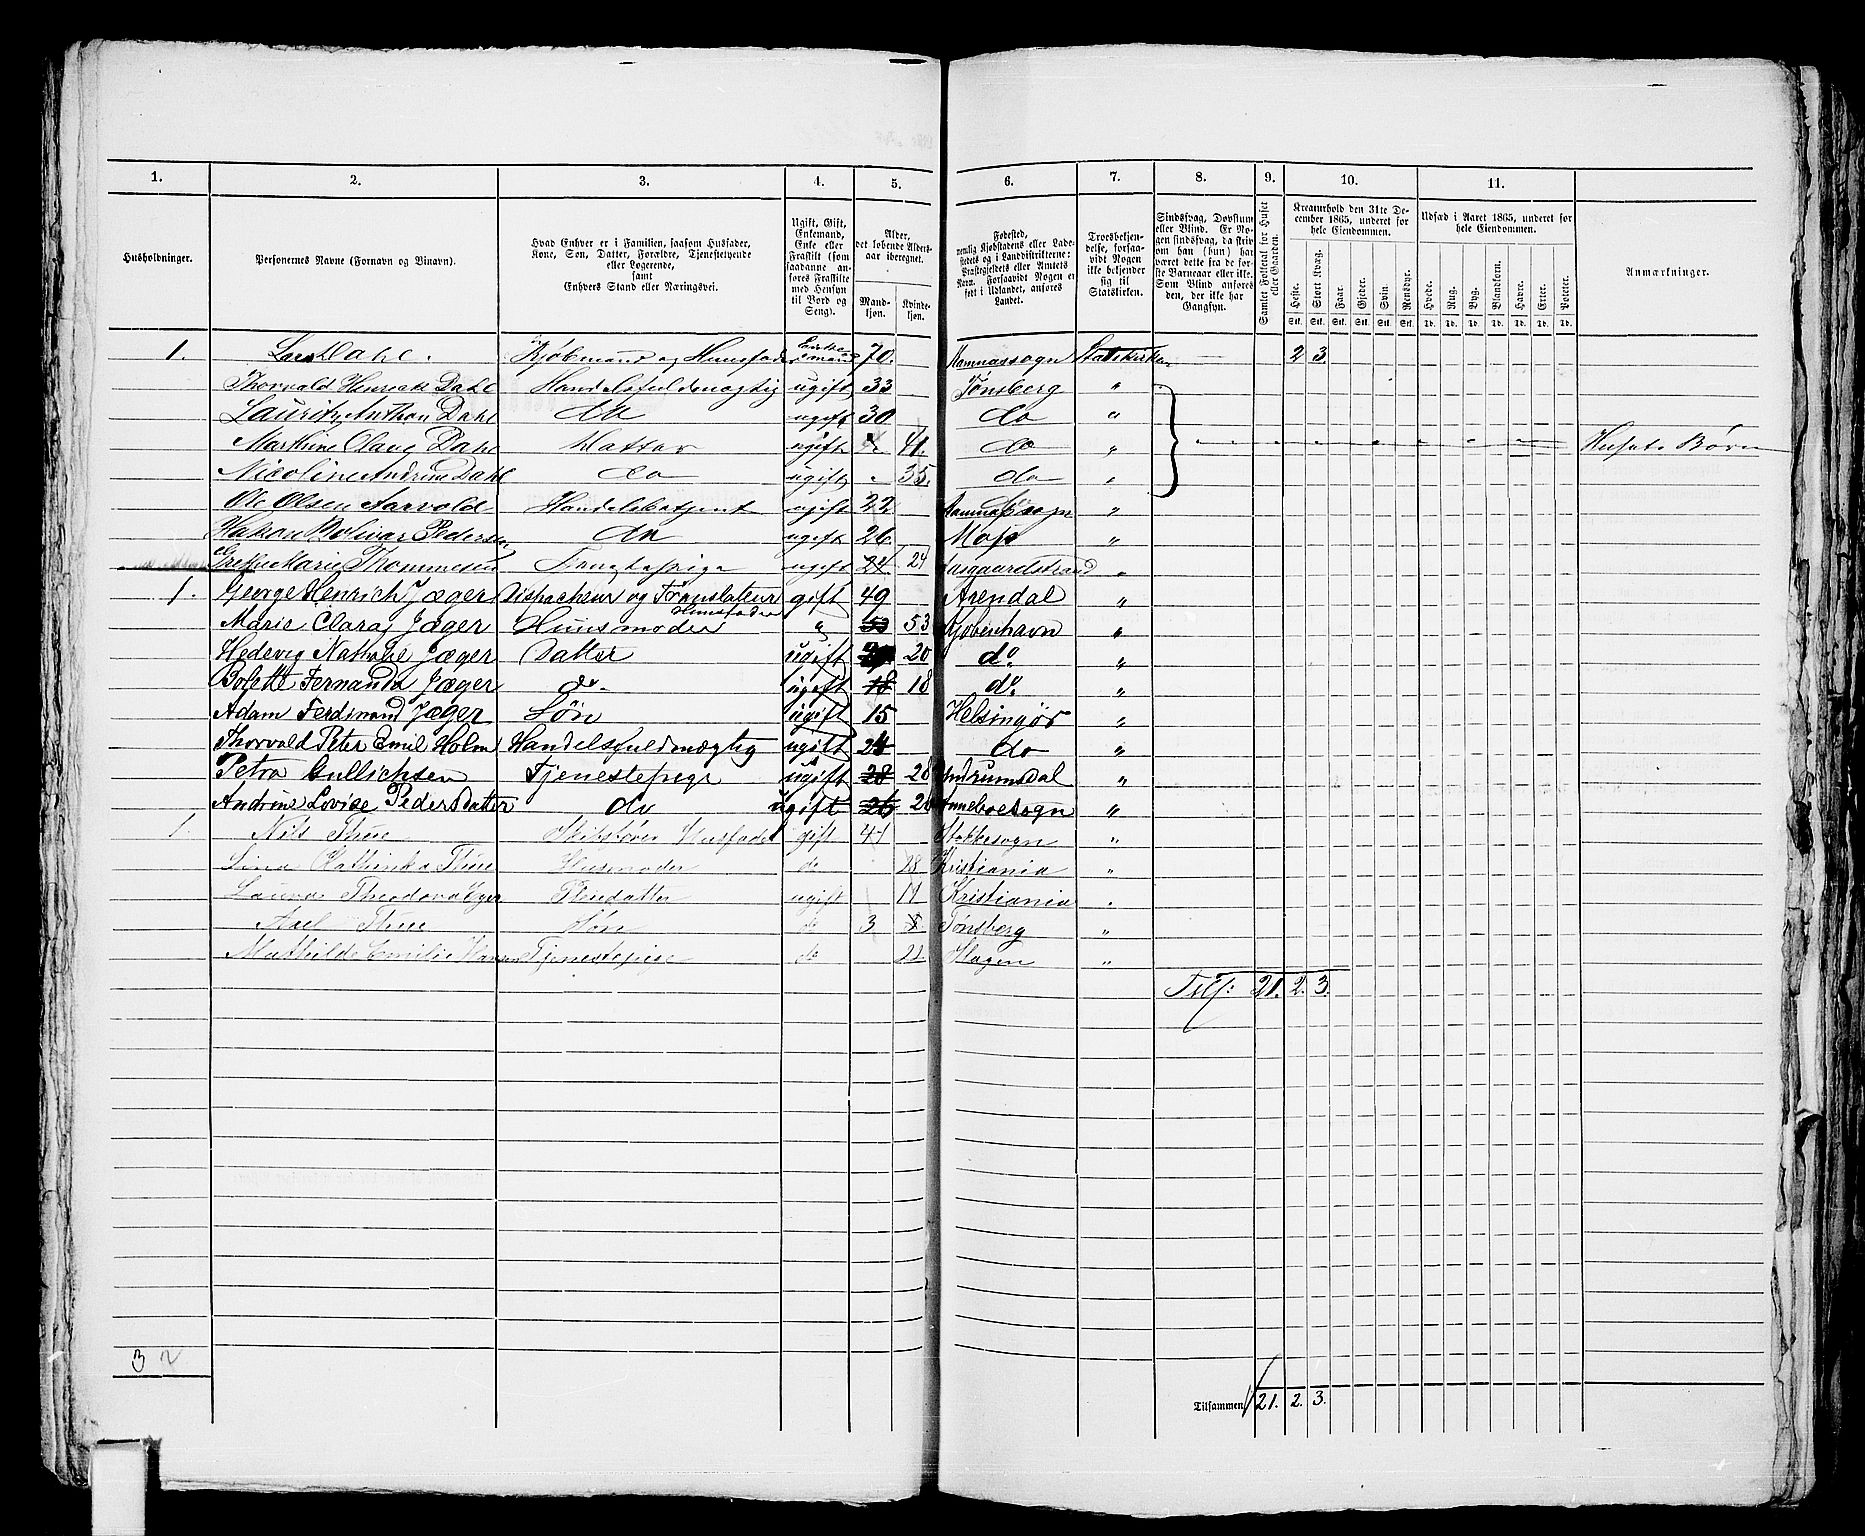 1. 2. 3. 4. 5. 6. 7. 8. 9. 10. 11.
Husholdninger.
Personernes Navne (Fornavn og Tilnavn).
Hvad Enhver er i Familien, saasom Husfader, Kone, Søn, Datter, Forældre, Tjenestetyende eller Logerende, samt Enhvers Stand eller Næringsvei.
Ugift, Gift, Enkemand, Enke eller Fraskilt (som saadanne anføres Fraskilte med Hensyn til Bord og Seng).
Alder, det løbende Aldersaar iberegnet.
Mandkjøn. Kvindekjøn.
Fødested, nemlig Kjøbstadens eller Ladestedets og i Landdistrikterne: Præstegjeldets eller Amtets Navn. Forsaavidt Nogen er født i Udlandet, anføres Landet.
Troesbekjendelse, forsaavidt Nogen ikke bekjender sig til Statskirken.
Sindssvag, Døvstum eller Blind. Er Nogen sindssvag, da skriv om han (hun) har været dette fra de første Barneaar eller ikke. Som Blind anføres den, der ikke har Gangsyn.
Samlet Folketal for Huset eller Gaarden.
Kreaturhold den 31te December 1865, underet for hele Eiendommen.
Heste. Stort Kvæg. Faar. Gjeder. Svin. Rensdyr.
Udsæd i Aaret 1865, underet for hele Eiendommen.
Hvede. Rug. Byg. Blandkorn. Havre. Erter. Poteter.
Anmærkninger.
1. Lars Dahl. Kjøbmand og Huusfader Enkemand 70. Ramnæssogn Statskirken — 2 3
Thorvald Henrich Dahl Handelsfuldmægtig ugift 33 Tønsberg "
Lauritz Anthon Dahl do ugift 30 do "
Marthine Olava Dahl Datter ugift 41. do " Husets Børn
Nicoline Andrine Dahl do ugift 35. do "
Ole Olsen Aarvold Handelsbetjent ugift 22. Ramnæssogn "
Hakon Bolivar Pedersen do ugift 26 Moss "
Grethe Marie Thommesen Tjenestepige ugift 24 24 Aasgaardstrand "
1. George Henrich Jæger Dispacheur og Translateur Huusfader gift 49 Arendal "
Marie Clara Jæger Huusmoder " 53 53 Kjøbenhavn "
Hedevig Nathalie Jæger Datter ugift 20 do. "
Bolette Fernanda Jæger do. ugift 18 18 do. "
Adam Ferdinand Jæger Søn ugift 15 Helsingør "
Thorvald Peter Emil Holm Handelsfuldmægtig ugift 24 do "
Petra Gullichsen Tjenestepige ugift 28 28 Andrumsdal "
Andrine Lovise Pedersdatter do ugift 26 Anneboesogn "
1. Nils Thue Skibsfører Husfader gift 41 Stokkesogn "
Lina Kathinka Thue Husmoder do 28 Kristiania "
Laura Theodora Eger Pleiedatter ugift 11 Kristiania "
Axel Thue Søn do 3 Tønsberg "
Mathilde Emilie Hansen Tjenestepige do 21 Slagen "
Tils: 21. 2. 3.
3
Tilsammen 21. 2. 3.